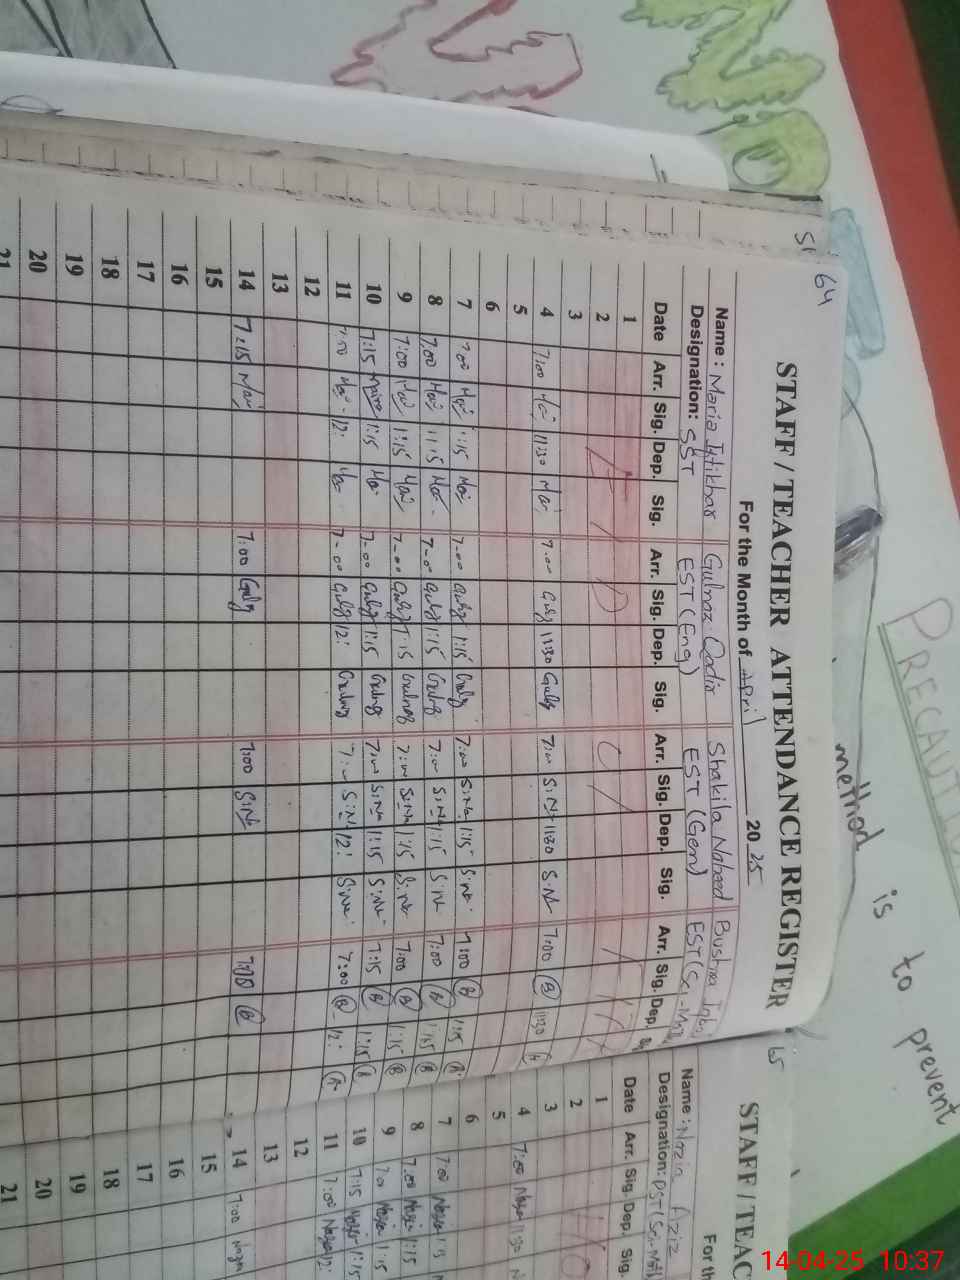 64
STAFF / TEACHER ATTENDANCE REGISTER
For the Month of April 2025
Name : Maria Iftikhar Gulnaz Qadir Shakila Naheed Bushra Iqbal
Designation: SST EST (Eng) EST (Gen) EST (Sci-Math
Date Arr. Sig. Dep. Sig. Arr. Sig. Dep. Sig. Arr. Sig. Dep. Sig. Arr. Sig. Dep.
1
2
3
4 7:00 11:30 7-00 Gulz 11:30 Gulz 7:00 S.N 11:30 S.N 7:00 B 11:30
5
6
7 7:00 1:15 7-00 Gulz 1:15 Gulz 7:00 S.Na 1:15 S.Na 7:00 B 1:15 B
8 7:00 1:15 7-00 Gulz 1:15 Gulnaz 7:00 S.Na 1:15 S.Na 7:00 B 1:15 B
9 7:00 1:15 7-00 Gulz 1:15 Gulnaz 7:00 S.Na 1:15 S.Na 7:00 B 1:15 B
10 7:15 Maria 1:15 7-00 Gulz 1:15 Gulnaz 7:00 S.Na 1:15 S.Na 7:15 B 1:15 B
11 7:00 12: 7-00 Gulz 12: Gulnaz 7:00 S.N 12: S.Na 7:00 B 12: B
12
13
14 7:15 7:00 Gulz 7:00 S.Na 7:00 B
15
16
17
18
19
20
21
65
STAFF / TEAC
For th
Name : Nazia Aziz
Designation: PST (Sci-Math
Date Arr. Sig. Dep. Sig.
1
2
3
4 7:00 11:30
5
6
7 7:00 Nazia 1:15
8 7:00 Nazia 1:15
9 7:00 Nazia 1:15
10 7:15 Nazia 1:15
11 7:00 Nazia 12:
12
13
14 7:00 Nazia
15
16
17
18
19
20
21
PRECAUTIO
method is to prevent
14-04-25 10:37